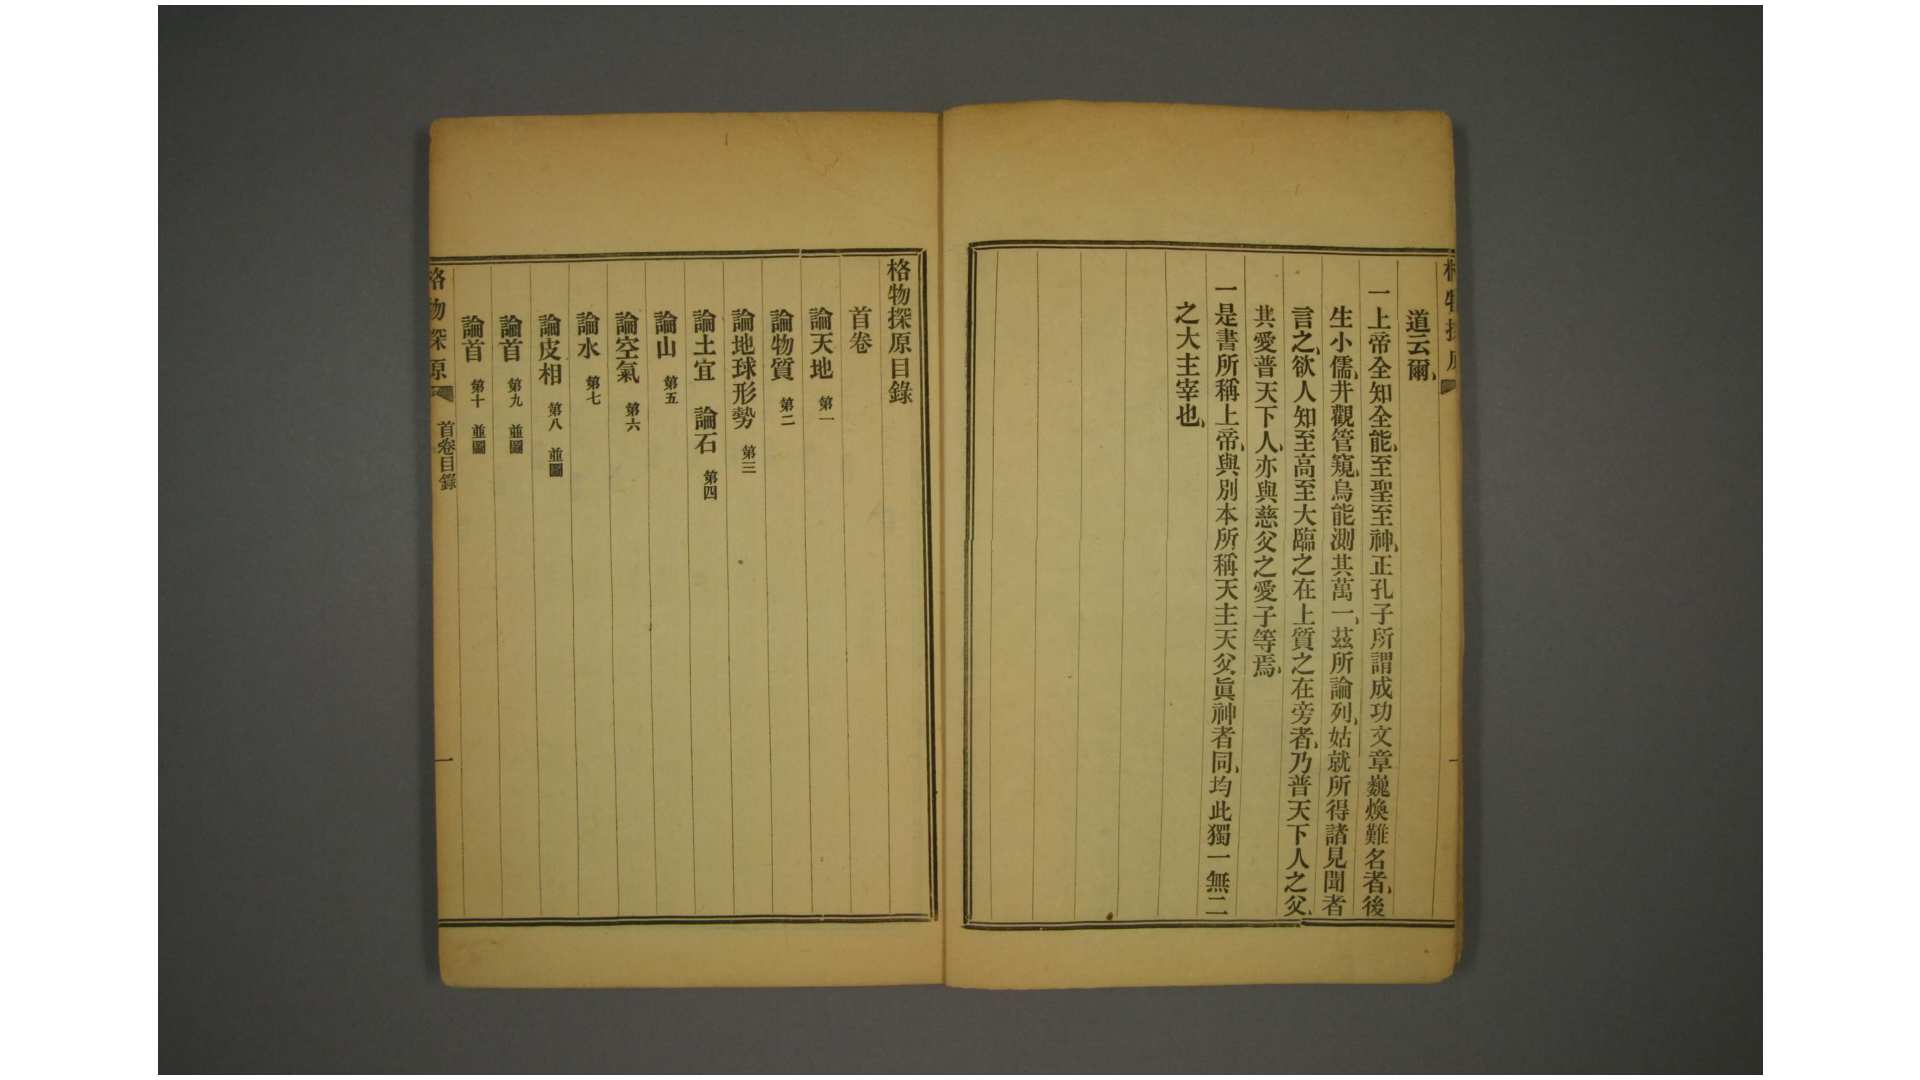 道云爾
一上帝全知全能、至聖至神、正孔子所謂成功文章巍煥難名者、後
生小儒、井觀管窺、烏能測其萬一、茲所論列、姑就所得諸見聞者
言之、欲人知至高至大臨之在上質之在旁者、乃普天下人之父、
其愛普天下人、亦與慈父之愛子等焉、
一是書所稱上帝、與別本所稱天主天父眞神者同、均此獨一無二
之大主宰也、
格物探原目錄
首卷
論天地 第一
論物質 第二
論地球形勢 第三
論土宜 論石 第四
論山 第五
論空氣 第六
論水 第七
論皮相 第八 並圖
論首 第九 並圖
論首 第十 並圖
格物探原 首卷目錄 一